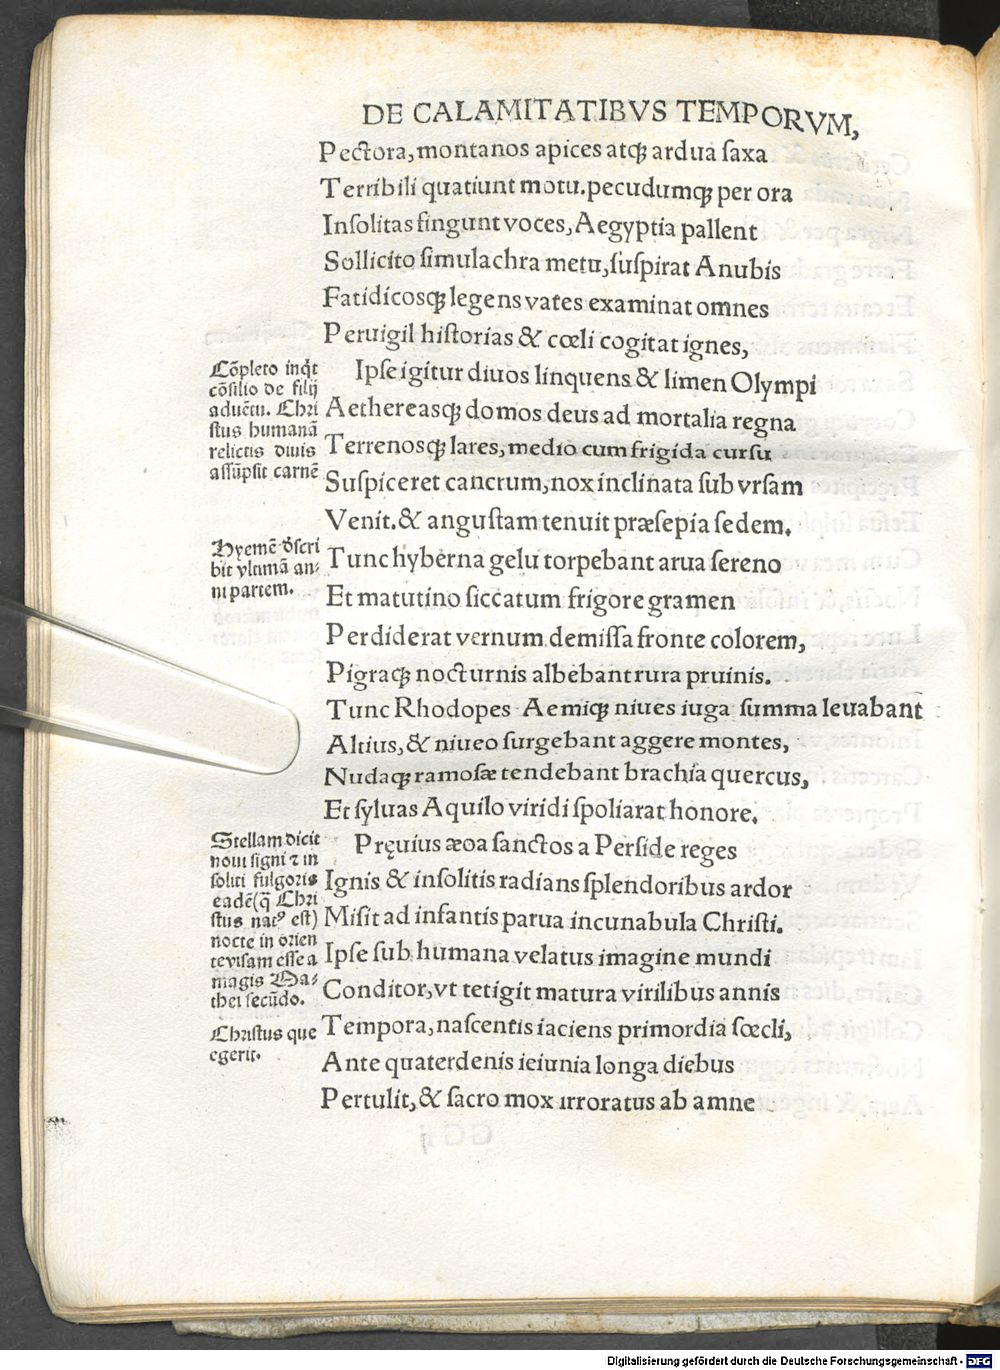 DE CALAMITATIBVS TEMPORVM,
Pectora, montanos apices atqꝫ ardua ſaxa
Terribili quatiunt motu. pecudumqꝫ per ora
Inſolitas fingunt voces, Aegyptia pallent
Sollicito ſimulachra metu, ſuſpirat Anubis
Fatidicosqꝫ legens vates examinat omnes
Peruigil hiſtorias & cœli cogitat ignes,
Cōpleto inq̇t
cōſilio de filij
aduētu. Chri
ſtus humanā
relictis diuis
aſſūpſit carnē
Ipſe igitur diuos linquens & limen Olympi
Aethereasqꝫ domos deus ad mortalia regna
Terrenosqꝫ lares, medio cum frigida curſu
Suſpiceret cancrum, nox inclinata ſub vrſam
Venit. & anguſtam tenuit præſepia ſedem.
Hyemē d̓ſcri
bit vltimā an-
ni partem.
Tunc hyberna gelu torpebant arua ſereno
Et matutino ſiccatum frigore gramen
Perdiderat vernum demiſſa fronte colorem,
Pigraqꝫ nocturnis albebant rura pruinis.
Tunc Rhodopes Aemiqꝫ niues iuga ſumma leuabant
Altius, & niueo ſurgebant aggere montes,
Nudaqꝫ ramoſæ tendebant brachia quercus,
Et ſyluas Aquilo viridi ſpoliarat honore.
Stellam dicit
noui ſigni ⁊ in
ſoliti fulgoris
eadē (q̄ Chri
ſtus natꝰ eſt)
nocte in orien
te viſam eſſe a
magis Ma-
thei ſecūdo.
Chriſtus que
egerit.
Pręuius æoa ſanctos a Perſide reges
Ignis & inſolitis radians ſplendoribus ardor
Miſit ad infantis parua incunabula Chriſti.
Ipſe ſub humana velatus imagine mundi
Conditor, vt tetigit matura virilibus annis
Tempora, naſcentis iaciens primordia ſœcli,
Ante quaterdenis ieiunia longa diebus
Pertulit, & ſacro mox irroratus ab amne
Digitalisierung gefördert durch die Deutsche Forschungsgemeinschaft - DFG